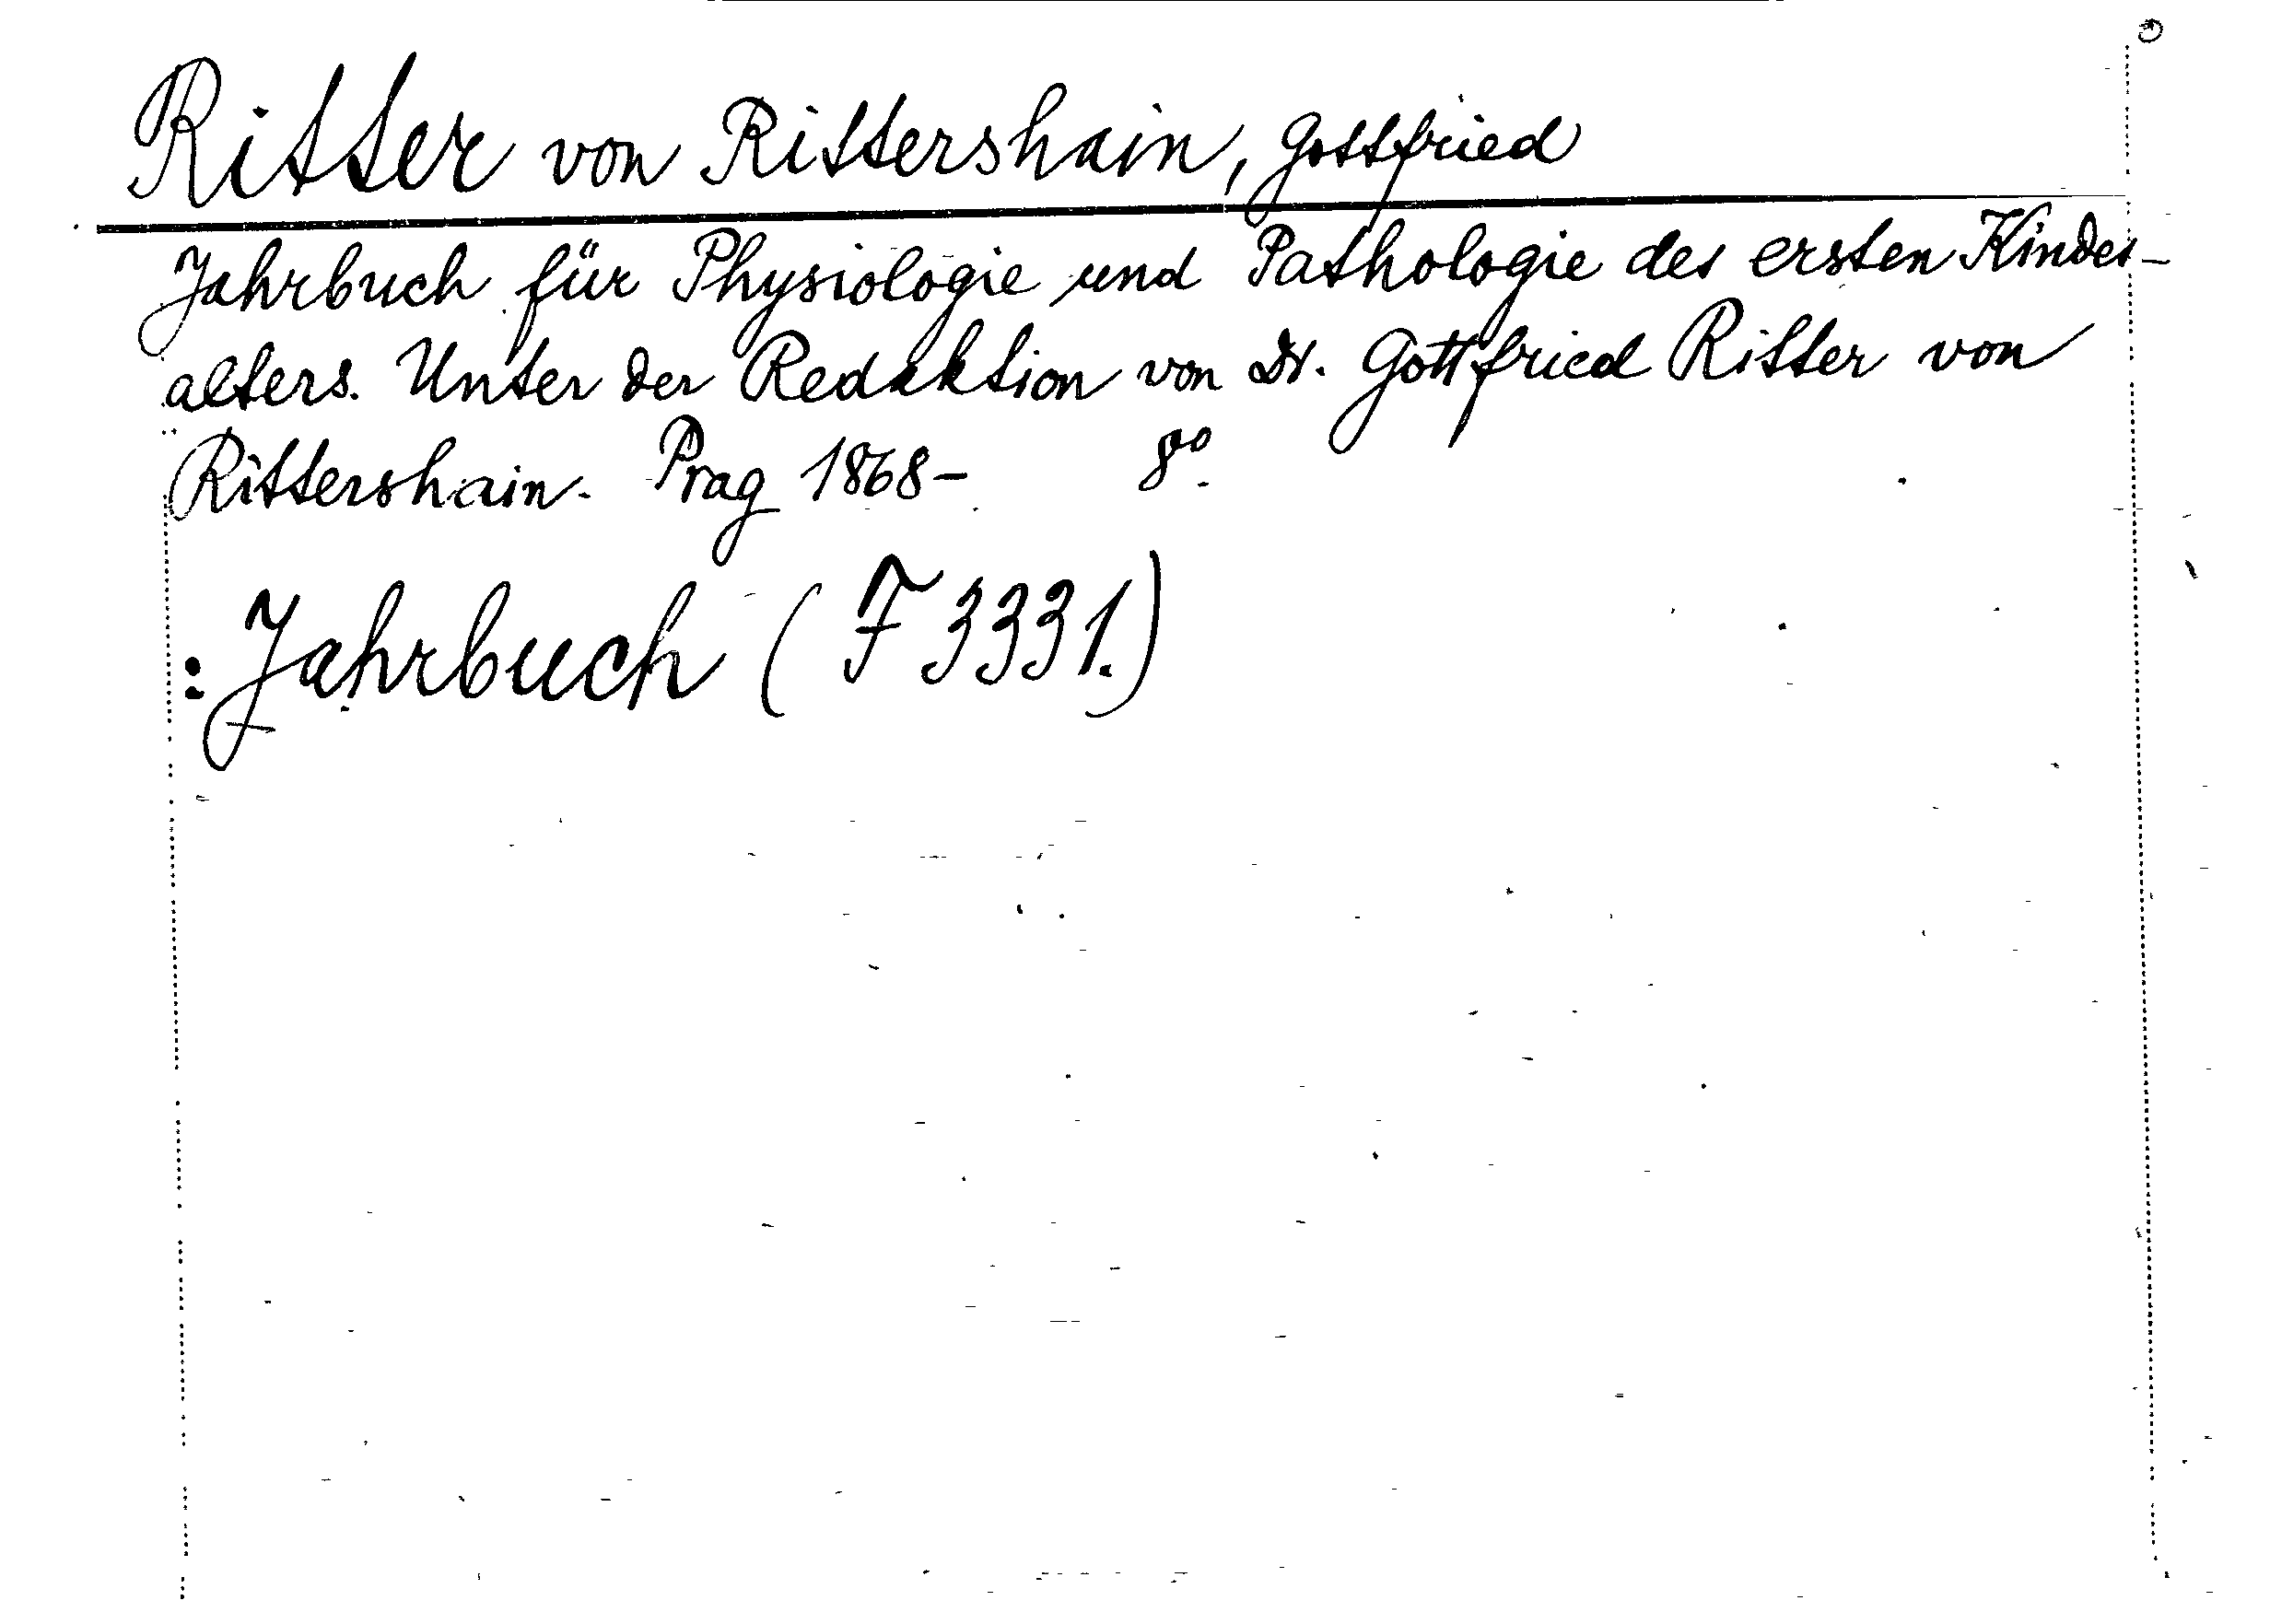 Ritter von Rittershain, Gottfried
Jahrbuch für Physiologie und Pathologie des ersten Kindes-
alters. Unter der Redaktion von Dr. Gottfried Ritter von
Rittershain. Prag 1868- 8°.
: Jahrbuch (F 3331.)